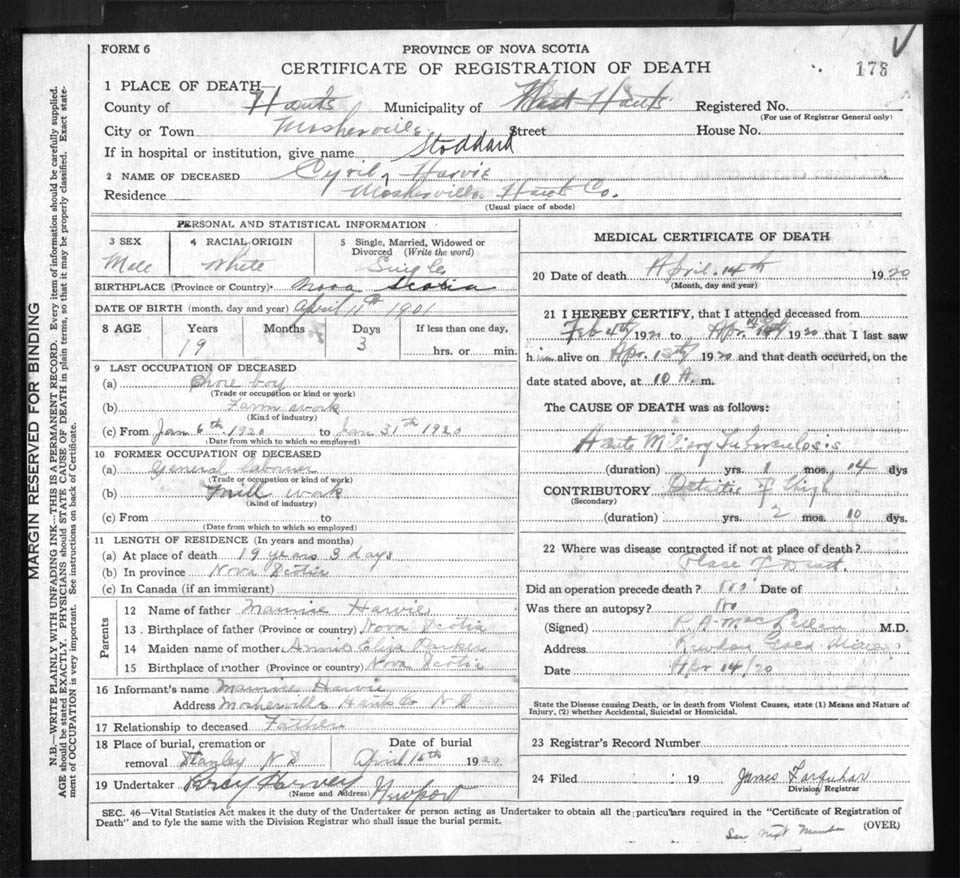 FORM 6
PROVINCE OF NOVA SCOTIA
CERTIFICATE OF REGISTRATION OF DEATH
178
1 PLACE OF DEATH—
County of Hants Municipality of West Hants Registered No.
(For use of Registrar General only)
City or Town Mosherville Street House No.
If in hospital or institution, give name
Stoddard
2 NAME OF DECEASED Cyril Harvie
Residence Mosherville Hants Co.
(Usual place of abode)
PERSONAL AND STATISTICAL INFORMATION
3 SEX 4 RACIAL ORIGIN 5 Single, Married, Widowed or Divorced (Write the word)
Male White Single
BIRTHPLACE (Province or Country) Nova Scotia
DATE OF BIRTH (month, day and year) April 11th 1901
8 AGE Years Months Days If less than one day,
19 3 hrs. or min.
9 LAST OCCUPATION OF DECEASED
(a) Chore boy
(Trade or occupation or kind or work)
(b) Farm work
(Kind of industry)
(c) From Jan 6th 1920 to Jan 31th 1920
(Date from which to which so employed)
10 FORMER OCCUPATION OF DECEASED
(a) General labourer
(Trade or occupation or kind of work)
(b) Mill work
(Kind of industry)
(c) From to
(Date from which to which so employed)
11 LENGTH OF RESIDENCE (In years and months)
(a) At place of death 19 years 3 days
(b) In province Nova Scotia
(c) In Canada (if an immigrant)
Parents
12 Name of father Harvie
13 Birthplace of father (Province or country) Nova Scotia
14 Maiden name of mother Annie Eliza Parker
15 Birthplace of mother (Province or country) Nova Scotia
16 Informant's name Harvie
Address Mosherville Hants Co N S
17 Relationship to deceased Father
18 Place of burial, cremation or removal Stanley N S
Date of burial April 16th 1920
19 Undertaker Percy Harvey Newport
(Name and Address)
MEDICAL CERTIFICATE OF DEATH
20 Date of death April 14th 1920
(Month, day and year)
21 I HEREBY CERTIFY, that I attended deceased from
Feb 4th 1920 to Apr. 1920 that I last saw
him alive on Apr. 13th 1920 and that death occurred, on the
date stated above, at 10 A. m.
The CAUSE OF DEATH was as follows:
Miliary Tuberculosis
(duration) yrs. 1 mos. 14 dys
CONTRIBUTORY of Thigh
(Secondary)
(duration) yrs. 2 mos. 10 dys.
22 Where was disease contracted if not at place of death?
Place of Death.
Did an operation precede death? No Date of
Was there an autopsy? No
(Signed) MacLellan M.D.
Address Rawdon Gold Mines
Date Apr 14/20
State the Disease causing Death, or in death from Violent Causes, state (1) Means and Nature of
Injury, (2) whether Accidental, Suicidal or Homicidal.
23 Registrar's Record Number
24 Filed 19 James Farquhar
Division Registrar
SEC. 46—Vital Statistics Act makes it the duty of the Undertaker or person acting as Undertaker to obtain all the particulars required in the "Certificate of Registration of
Death" and to fyle the same with the Division Registrar who shall issue the burial permit. (OVER)
See next Number
MARGIN RESERVED FOR BINDING
N.B.—WRITE PLAINLY WITH UNFADING INK—THIS IS A PERMANENT RECORD. Every item of information should be carefully supplied.
AGE should be stated EXACTLY. PHYSICIANS should STATE CAUSE OF DEATH in plain terms, so that it may be properly classified. Exact state-
ment of OCCUPATION is very important. See instructions on back of Certificate.